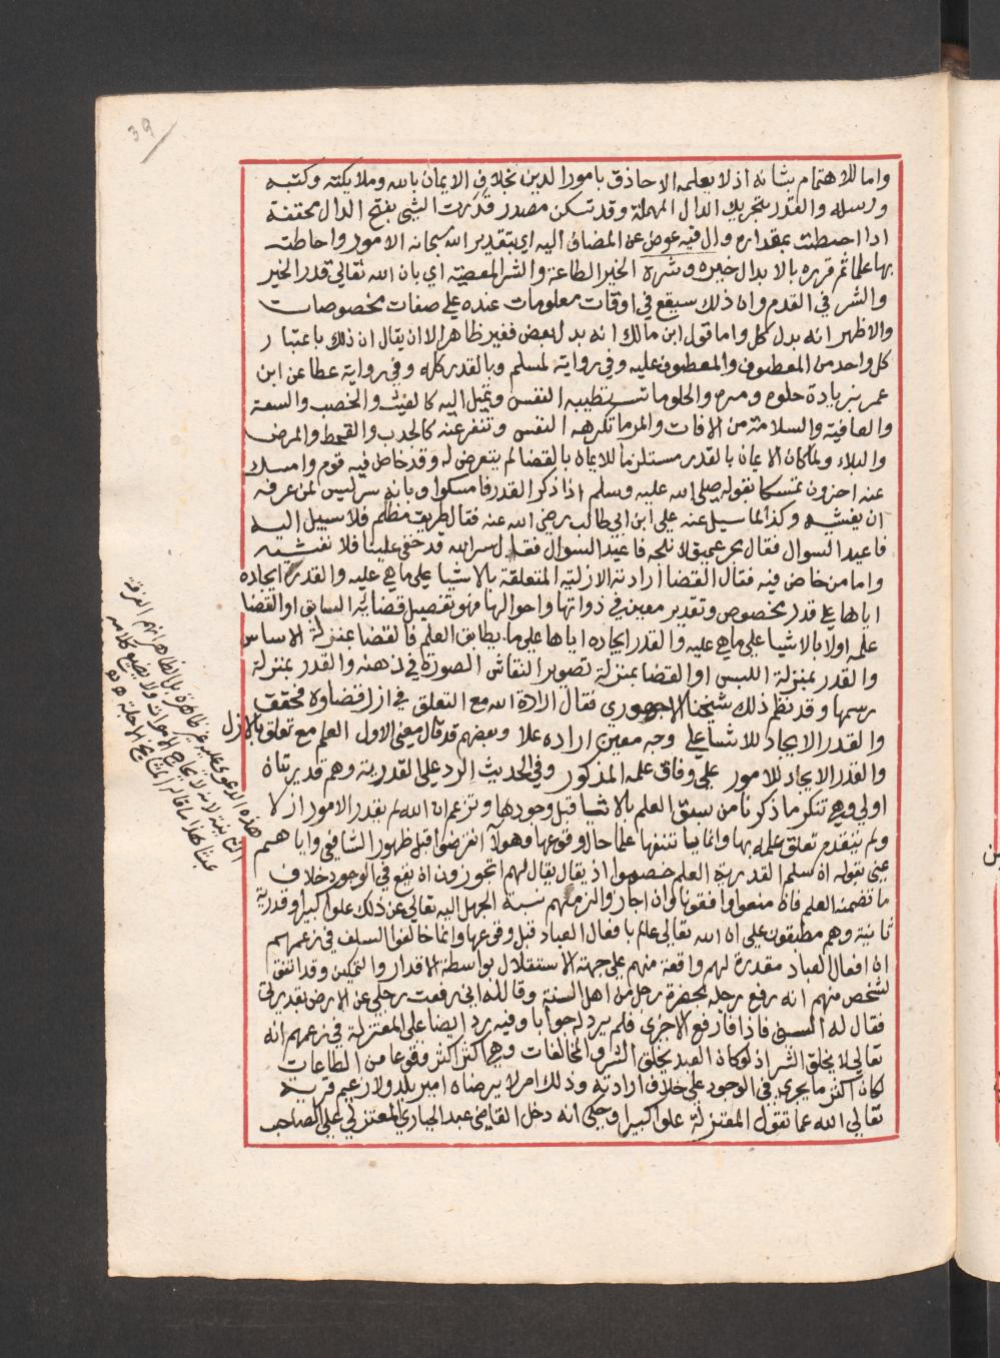 39
واما للاهتمام بشانه اذ لا يعلمه الا حاذق بامور الدين بخلاف الايمان بالله وملايكته وكتبه
ورسله والقدر بتحريك الدال المهملة وقد تسكن مصدر قدرت الشي بفتح الدال مخففة
اذا احطت بمقداره وال فيه عوض عن المضاف اليه اي بتقدير الله سبحانه الامور واحاطت
بها علما ثم قرره بالابدال خيره وشره الخير الطاعة والشر المعصية اي بان الله تعالي قدر الخير
والشر في القدم وان ذلك سيقع في اوقات معلومات عنده علي صفات مخصوصات
والاظهر انه بدل كل واما قول ابن مالك انه بدل بعض فغير ظاهر الا ان يقال ان ذلك باعتبار
كل واحد من المعطوف والمعطوف عليه وفي رواية لمسلم وبالقدر كله وفي رواية عطا عن ابن
عمر بزيادة حلوه ومره والحلو ما تستطيبه النفس وتميل اليه كالغيث والخصب والسعة
والعافية والسلامة من الافات والمر ما تكرهه النفس وتنفر عنه كالجدب والقحط والمرض
والبلاء ولما كان الايمان بالقدر مستلزما للايمان بالقضا لم يتعرض له وقد خاض فيه قوم وامسك
عنه اخرون تمسكا بقوله صلي الله عليه وسلم اذا ذكر القدر فامسكوا وبانه سر ليس لمن عرفه
ان يفشيه وكذا لما سيل عنه علي ابن ابي طالب رضي الله عنه فقال طريق مظلم فلا سبيل اليه
فاعيد السوال فقال بحر عميق لا تلجه فاعيد السوال فقال سر الله قد خفي علينا فلا نفشيه
واما من خاض فيه فقال القضا ارادته الازلية المتعلقة بالاشيا علي ما هي عليه والقدر ايجاده
اياها علي قدر مخصوص وتقدير معين في ذواتها واحوالها فهو تفصيل قضايه السابق او القضا
علمه اولا بالاشيا علي ما هي عليه والقدر ايجاده اياها علي ما يطابق العلم فالقضا بمنزلة الاساس
والقدر بمنزلة اللبس او القضا بمنزلة تصوير النقاش الصورة في ذهنه والقدر بمنزلة
رسمها وقد نظم ذلك شيخنا الاجهوري فقال ارادة الله مع التعلق في ازل قضاوه فحقق
والقدر الايجاد للاشيا علي وجه معين اراده علا وبعضهم قد قال معني الاول العلم مع تعلق بالازل
والقدر الايجاد للامور علي وفاق علمه المذكور وفي الحديث الرد علي القدرية وهم قدريتان
اولي وهي تنكر ما ذكرنا من سبق العلم بالاشيا قبل وجودها وتزعم ان الله لم يقدر الامور ازلا
ولم يتقدم تعلق علمه بها وانما يستأنفها علما حال وقوعها وهولا انقرضوا قبل ظهور الشافعي واياهم
عني بقوله ان سلم القدرية العلم خصموا اذ يقال لهم اتجوزون ان يقع في الوجود خلاف
ما تضمنه العلم فان منعوا وافقونا وان اجازوا لزمهم نسبة الجهل اليه تعالي عن ذلك علوا كبيرا وقدرية
ثانية وهم مطبقون علي ان الله تعالي عالم بافعال العباد قبل وقوعها وانما خالفوا السلف في زعمهم
ان افعال العباد مقدرة لهم واقعة منهم علي جهة الاستقلال بواسطة الاقدار والتمكين وقد اتفق
لشخص منهم انه رفع رجله بحضرة رجل من اهل السنة وقال له اني رفعت رجلي عن الارض بقدرتي
فقال له السني فاذا فارفع الاخري فلم يرد له جوابا وفيه رد ايضا علي المعتزلة في زعمهم انه
تعالي لا يخلق الشر اذ لو كان العبد يخلق الشر والمخالفات وهي اكثر وقوعا من الطاعات
لكان اكثر ما يجري في الوجود علي خلاف ارادته وذلك امر لا يرضاه امير بلد ولا زعيم قرية
تعالي الله عما تقول المعتزلة علوا كبيرا وحكي انه دخل القاضي عبد الجباري المعتزلي علي الصاحب
هذه الدعوي عليه غير ظاهرة بل الظاهر انهم الفرقة